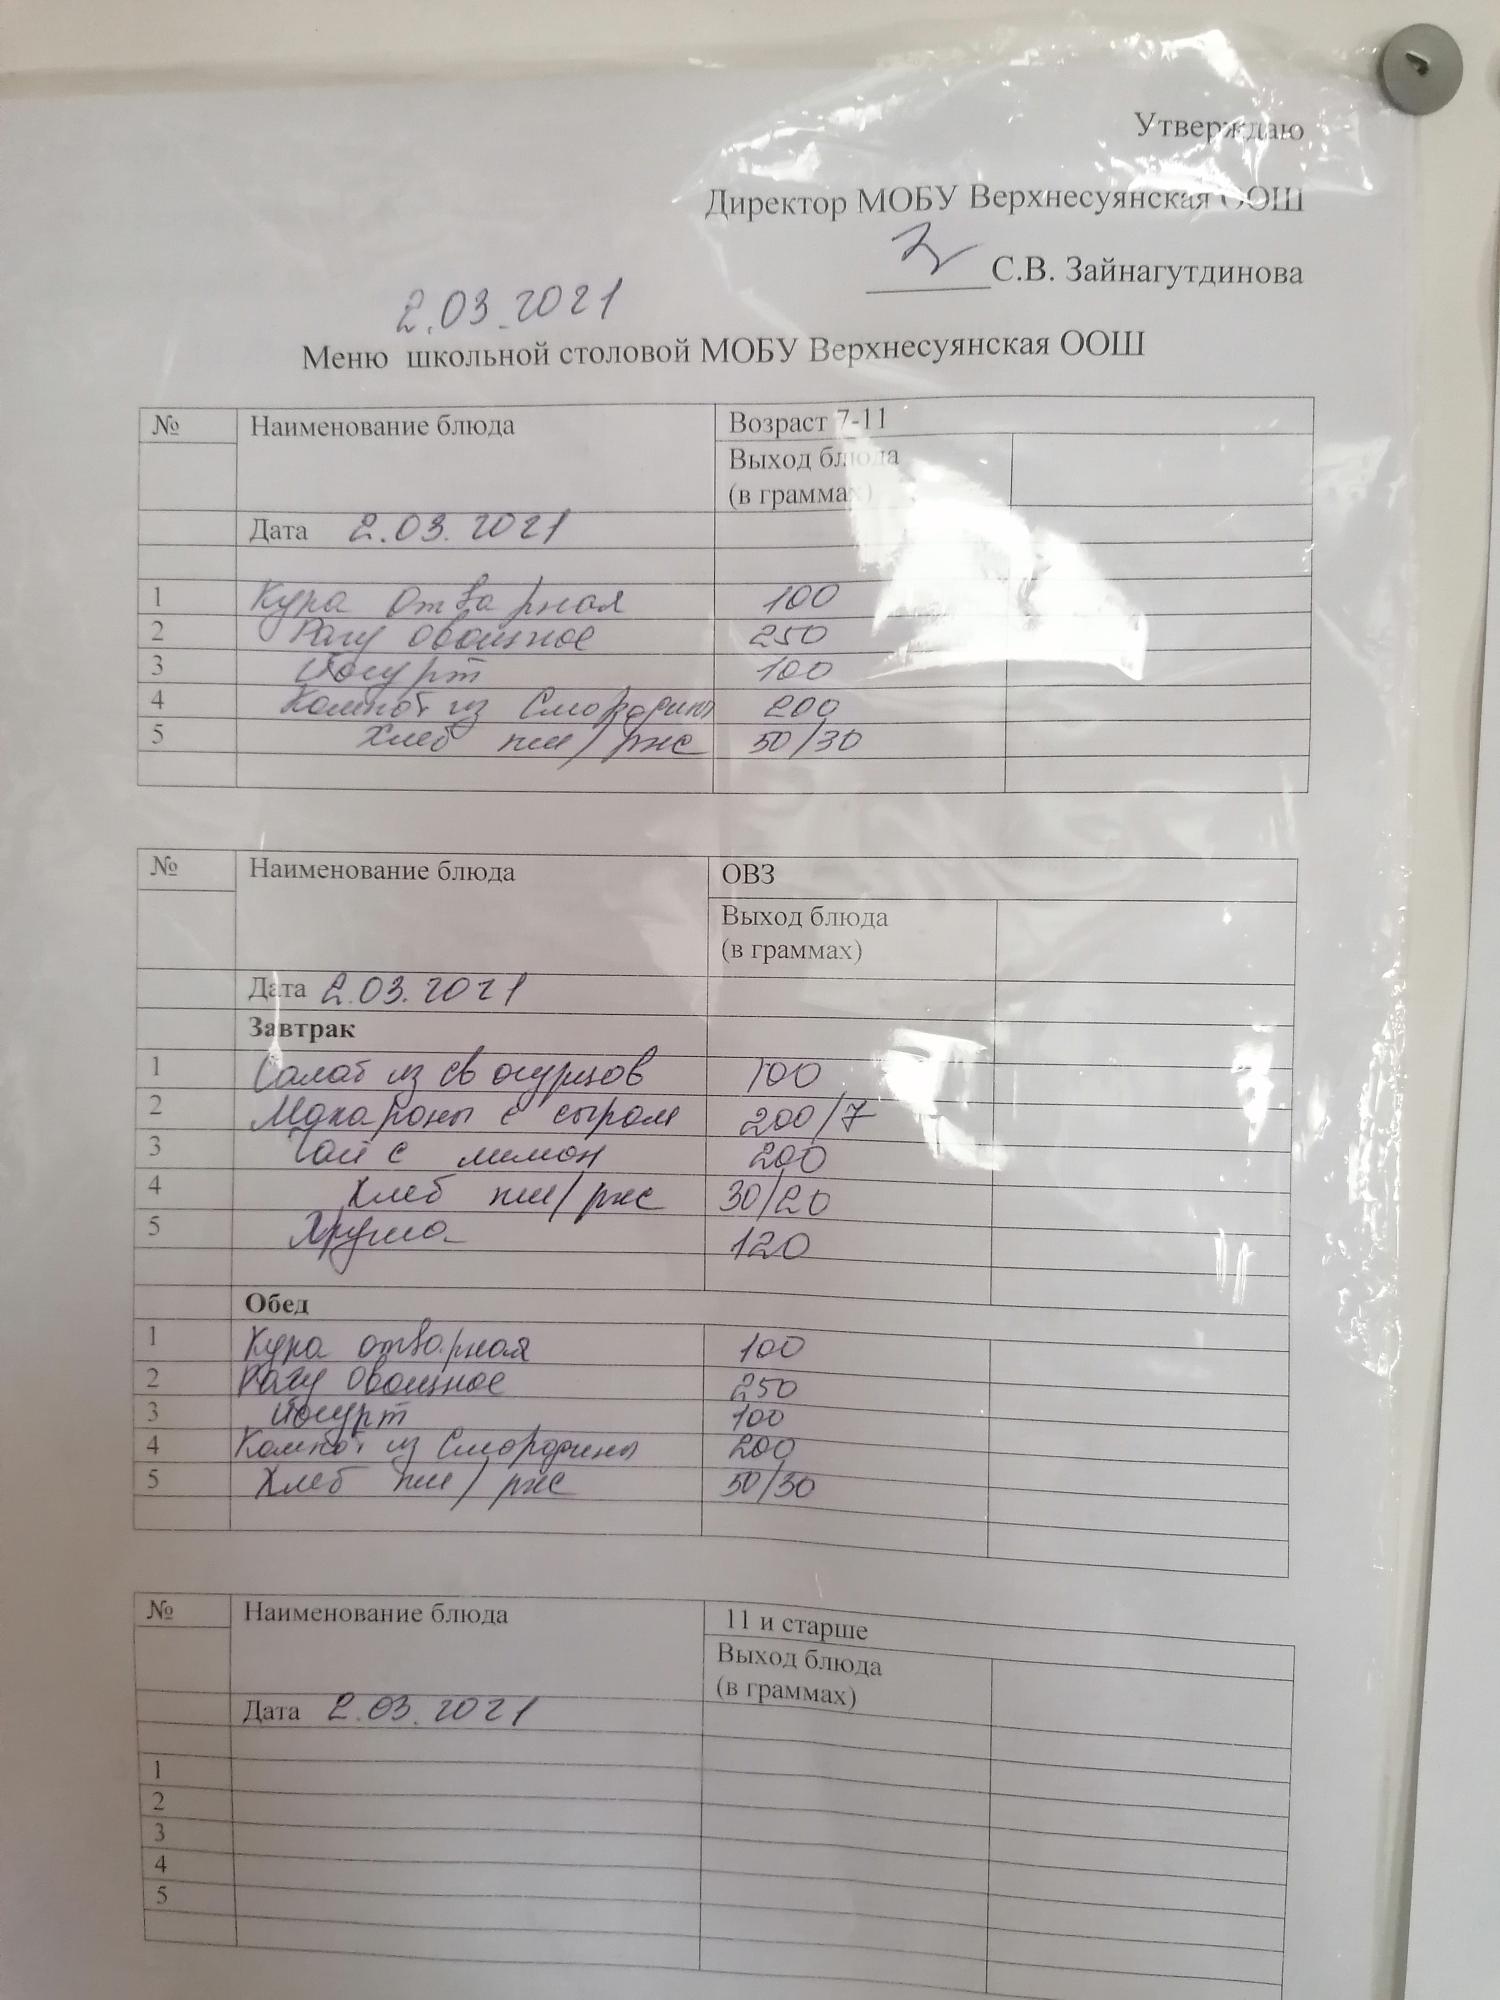 Утверждаю
Директор МОБУ Верхнесуянская ООШ
С.В. Зайнагутдинова
2.03.2021
Меню школьной столовой МОБУ Верхнесуянская ООШ
№ Наименование блюда Возраст 7-11
Выход блюда
(в граммах)
Дата 2.03.2021
1 Кура отварная 100
2 Рагу овощное 250
3 Йогурт 100
4 Компот из Смородины 200
5 Хлеб пш/ржс 50/30
№ Наименование блюда ОВЗ
Выход блюда
(в граммах)
Дата 2.03.2021
Завтрак
1 Салат из св огурцов 100
2 Макароны с сыром 200/7
3 Чай с лимон 200
4 Хлеб пш/ржс 30/20
5 120
Обед
1 Кура отварная 100
2 Рагу Овощное 250
3 Йогурт 100
4 Компот из Смородины 200
5 Хлеб пш/ржс 50/30
№ Наименование блюда 11 и старше
Выход блюда
(в граммах)
Дата 2.03.2021
1
2
3
4
5